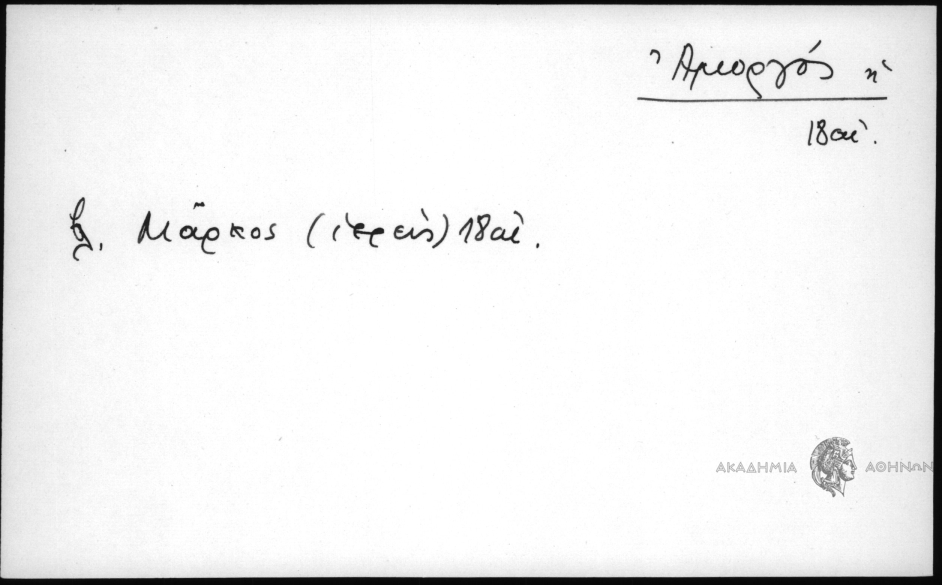 Ἀμοργός ἡ
18αἰ.
βλ. Μᾶρκος (ἱερεὺς) 18αἰ.
ΑΚΑΔΗΜΙΑ ΑΘΗΝΩΝ